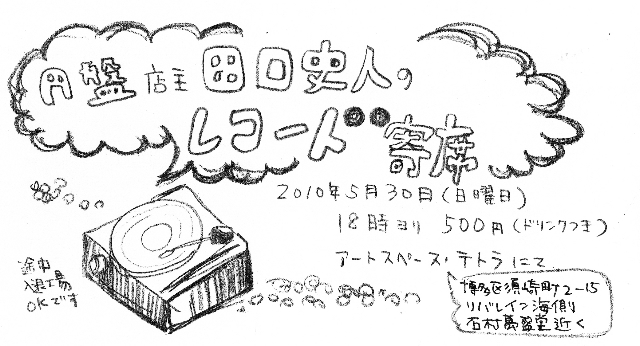 円盤店主田口史人の
レコード寄席
2010年5月30日(日曜日)
18時ヨリ 500円(ドリンクつき)
アートスペース・テトラにて
途中
入退場
OKです
博多区須崎町2-15
リバレイン海側
石村萬盛堂近く